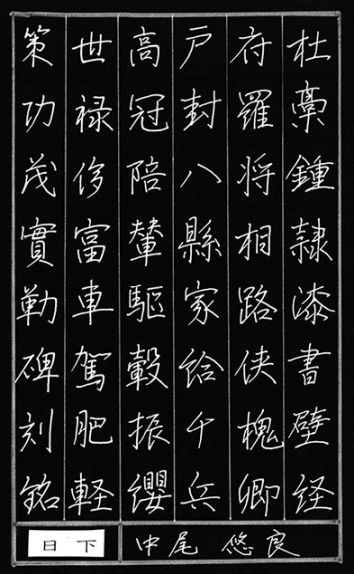 杜稾鍾隷漆書壁経
府羅将相路侠槐卿
戸封八縣家給千兵
高冠陪輦駆轂振纓
世禄侈富車駕肥軽
策功茂實勒碑刻銘
日下
中尾 悠良